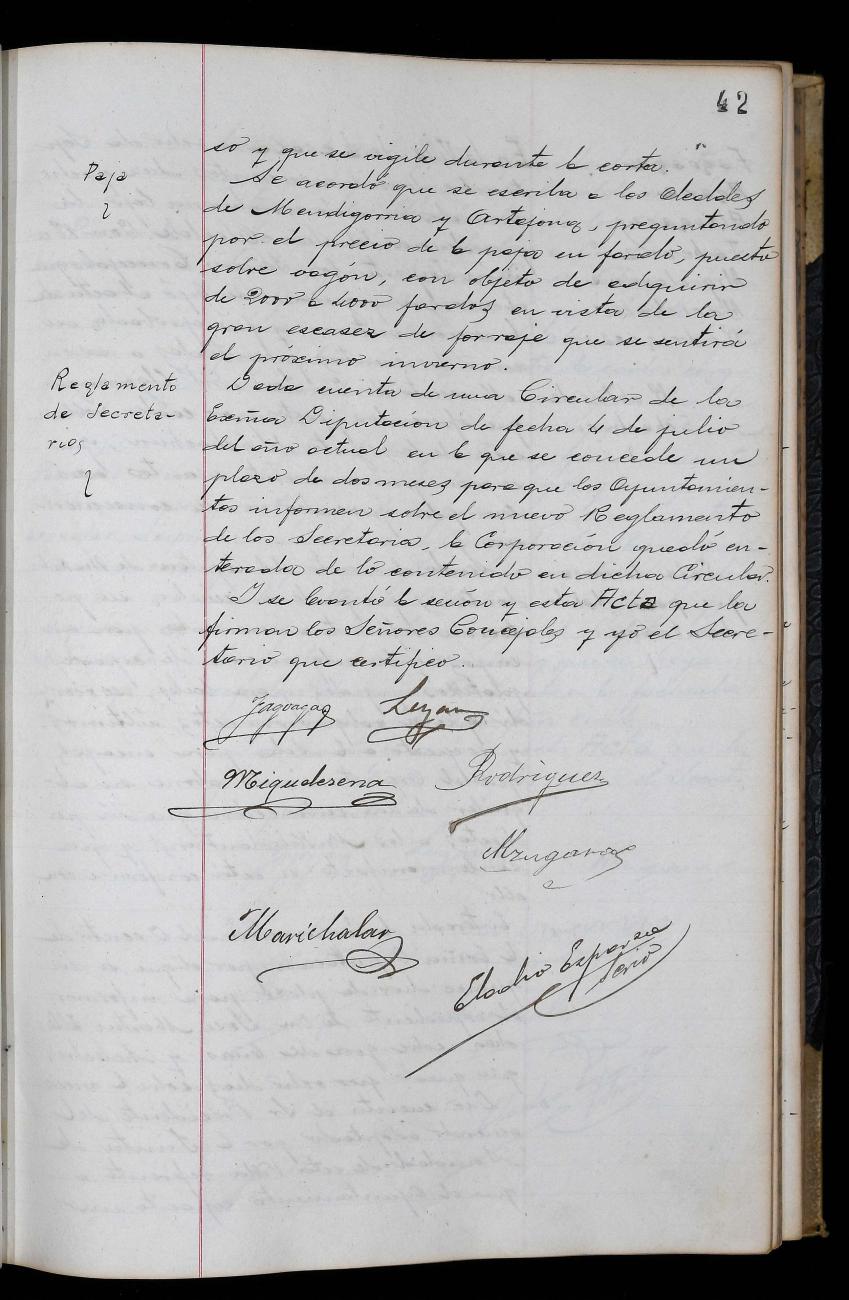 42
so y que se vigile durante la corta.
Paja
Se acordó que se escriba a los Alcaldes
de Mendigorria y Artajona, preguntando
por el precio de la paja en fardo, puesta
sobre vagón, con objeto de adquirir
de 2000 a 4000 fardos en vista de la
gran escasez de forraje que se sentirá
el próximo invierno.
Reglamento
de Secreta-
rios
Dada cuenta de una Circular de la
Exma Diputación de fecha 4 de julio
del año actual en la que se concede un
plazo de dos meses para que los Ayuntamien-
tos informen sobre el nuevo Reglamento
de los Secretaria, la Corporación quedó en-
terada de lo contenido en dicha Circular.
Y se levantó la sesión y esta Acta que la
firman los Señores Concejales y yo el Secre-
tario que certifico.
Jaguagaz Lizan
Miguelezena Rodriguez
Muzgaraz
Marichalar
Eladio Esparza
Serio